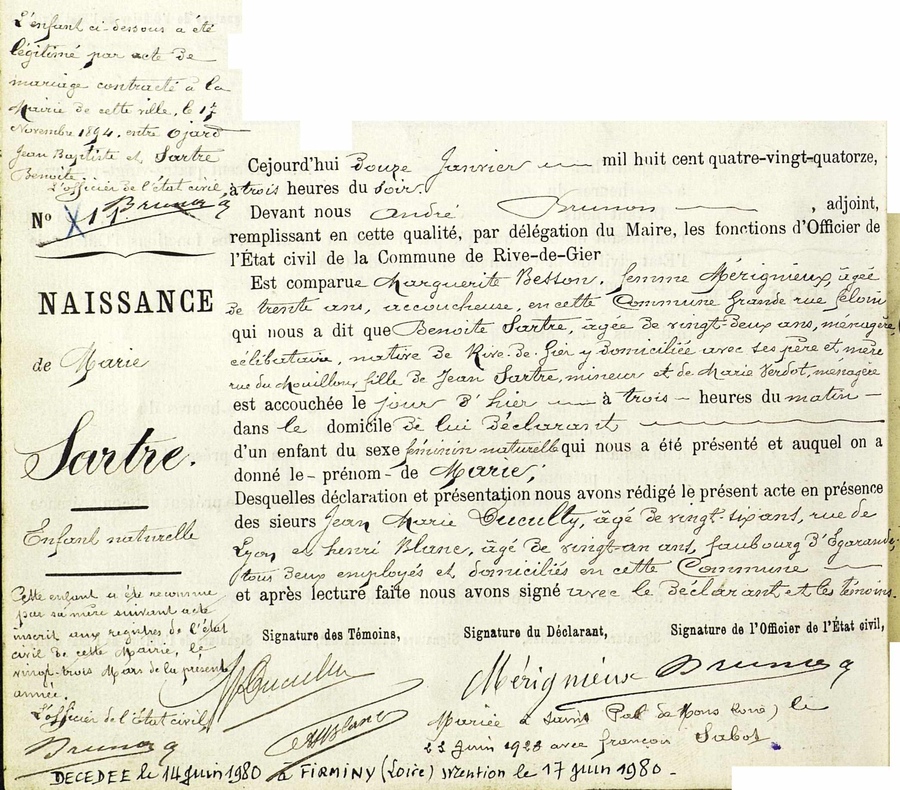 L'enfant ci-dessous a été
légitimé par acte de
mariage contracté à la
Mairie de cette ville, le 17
Novembre 1894, entre Ojard
Jean Baptiste et Sartre
Benoite
L'officier de l'état civil,
Brunon
N° 11
NAISSANCE
de Marie
Sartre.
Enfant naturelle
Cette enfant a été reconnue
par sa mère suivant acte
inscrit aux registres de l'état
civil de cette Mairie, le
vingt-trois Mars de la présente
année.
L'officier de l'état civil,
Brunon
Cejourd'hui douze Janvier mil huit cent quatre-vingt-quatorze,
à trois heures du soir.
Devant nous André Brunon, adjoint,
remplissant en cette qualité, par délégation du Maire, les fonctions d'Officier de
l'État civil de la Commune de Rive-de-Gier
Est comparue Marguerite Besson, femme Mérignieux, âgée
de trente ans, accoucheuse, en cette Commune Grande rue Féloin
qui nous a dit que Benoite Sartre, âgée de vingt-deux ans, ménagère,
célibataire, native de Rive-de-Gier y domiciliée avec ses père et mère
rue du Mouillon, fille de Jean Sartre, mineur et de Marie Verdot, ménagère
est accouchée le jour d'hier à trois heures du matin
dans le domicile de lui déclarant
d'un enfant du sexe féminin naturelle qui nous a été présenté et auquel on a
donné le prénom de Marie;
Desquelles déclaration et présentation nous avons rédigé le présent acte en présence
des sieurs Jean Marie Ducully, âgé de vingt-six ans, rue de
Lyon et henri Blanc, âgé de vingt-un ans, faubourg d'Egarande,
tous deux employés et domiciliés en cette Commune
et après lecture faite nous avons signé avec le déclarant et les témoins.
Signature des Témoins, Signature du Déclarant, Signature de l'Officier de l'État civil,
Ducully Mérignieux Brunon
Blanc
Mariée à Saint Pal de Mons le
juin avec françois Sabot
DECEDEE le 14 Juin 1980 à FIRMINY (Loire) Mention le 17 Juin 1980 -